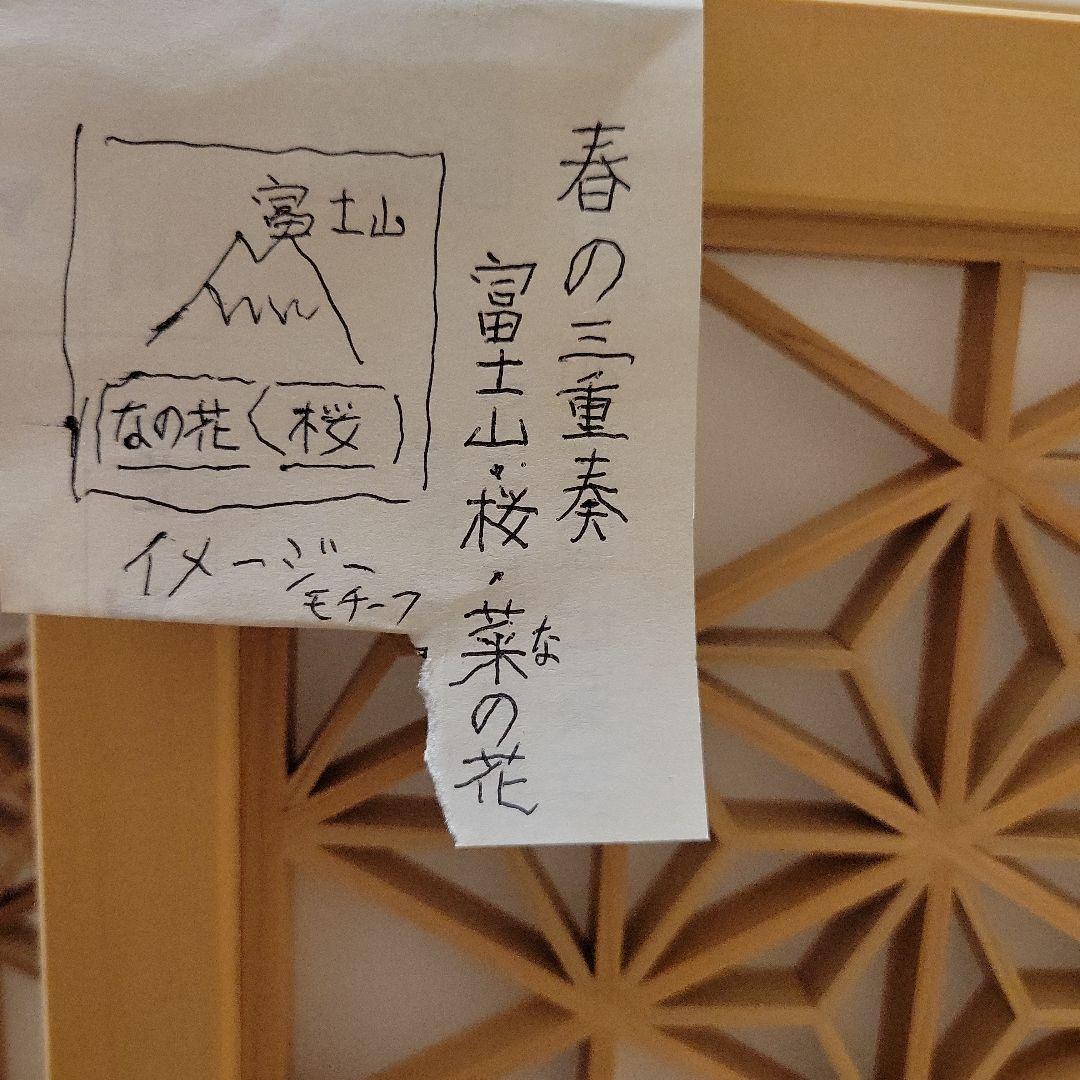 春の三重奏
富士山・桜・菜の花
な
富士山
なの花 桜
イメージ
モチーフ